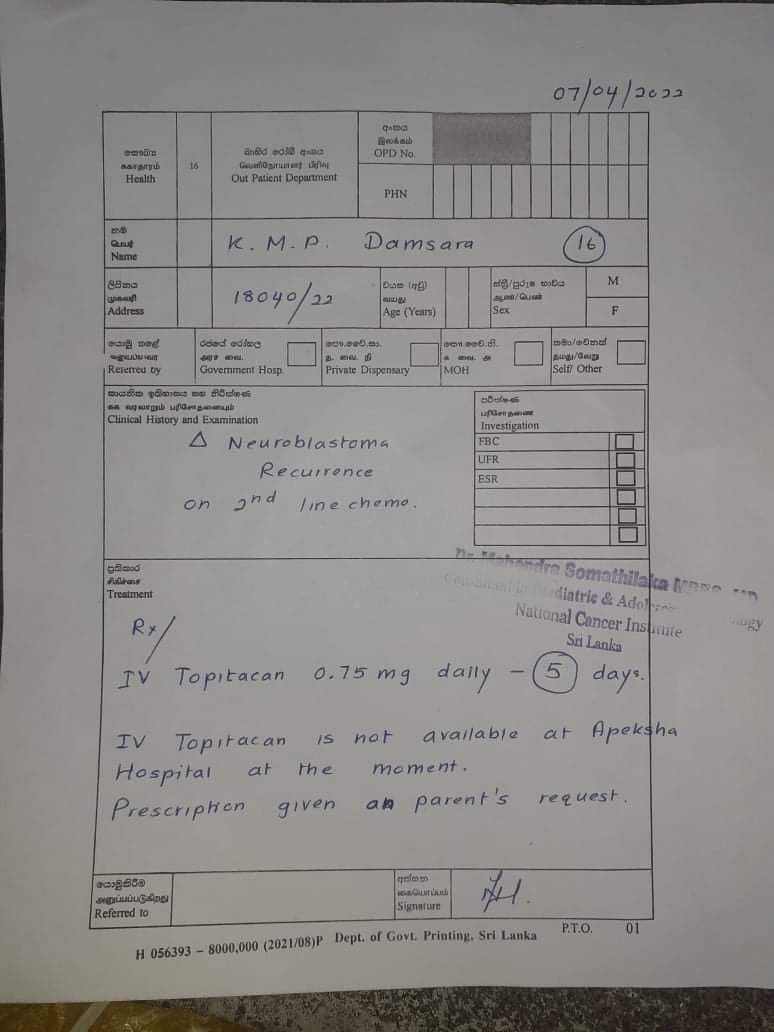 07/04/2022
සෞඛ්‍ය
சுகாதாரம்
Health
16
බාහිර රෝගී අංශය
வெளிநோயாளர் பிரிவு
Out Patient Department
අංකය
இலக்கம்
OPD No.
PHN
නම
பெயர்
Name
K. M. P. Damsara 16
ලිපිනය
முகவரி
Address
18040/22
වයස (අවු)
வயது
Age (Years)
ස්ත්‍රී/පුරුෂ භාවය
ஆண்/பெண்
Sex
M
F
යොමු කළේ
Referred by
රජයේ රෝහල
அரச வை.
Government Hosp.
පෞ.වෛ.සා.
த. வை. நி
Private Dispensary
සෞ.වෛ.නි.
சு. வை. அ
MOH
තමා/වෙනත්
தமது/வேறு
Self/ Other
සායනික ඉතිහාසය සහ නිරීක්ෂණ
Clinical History and Examination
Δ Neuroblastoma
Recurrence
on 2nd line chemo.
පරීක්ෂණ
பரிசோதனை
Investigation
FBC
UFR
ESR
ප්‍රතිකාර
சிகிச்சை
Treatment
Dr. Mahendra Somathilaka MBBS, MD
National Cancer Institute
Sri Lanka
Rx/
IV Topitacan 0.75 mg daily - 5 days.
IV Topitacan is not available at Apeksha
Hospital at the moment.
Prescription given an parent's request.
යොමුකිරීම
அனுப்பப்படுகிறது
Referred to
අත්සන
கையொப்பம்
Signature
H 056393 – 8000,000 (2021/08)P Dept. of Govt. Printing, Sri Lanka
P.T.O.
01